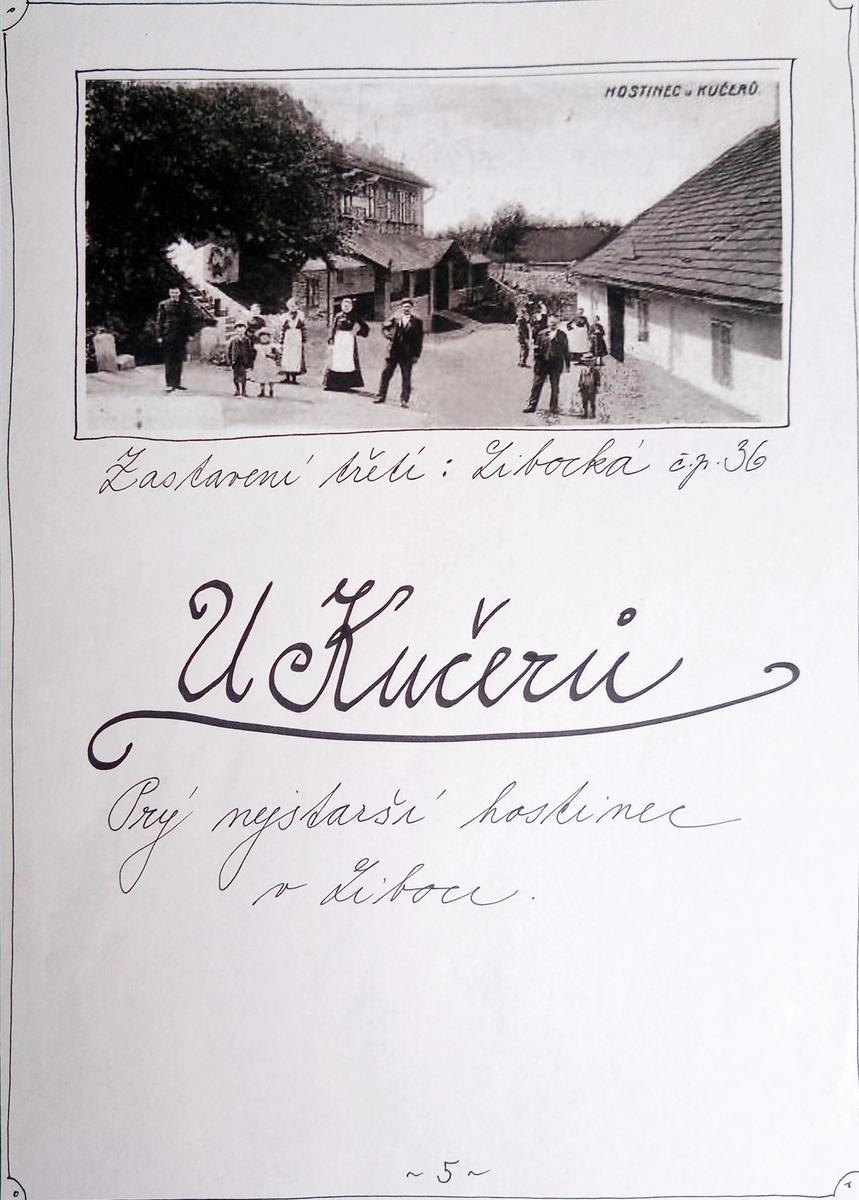 HOSTINEC u KUČERŮ
Zastavení třetí: Libocká č.p. 36
U Kučerů
Prý nejstarší hostinec
v Liboci.
~ 5 ~